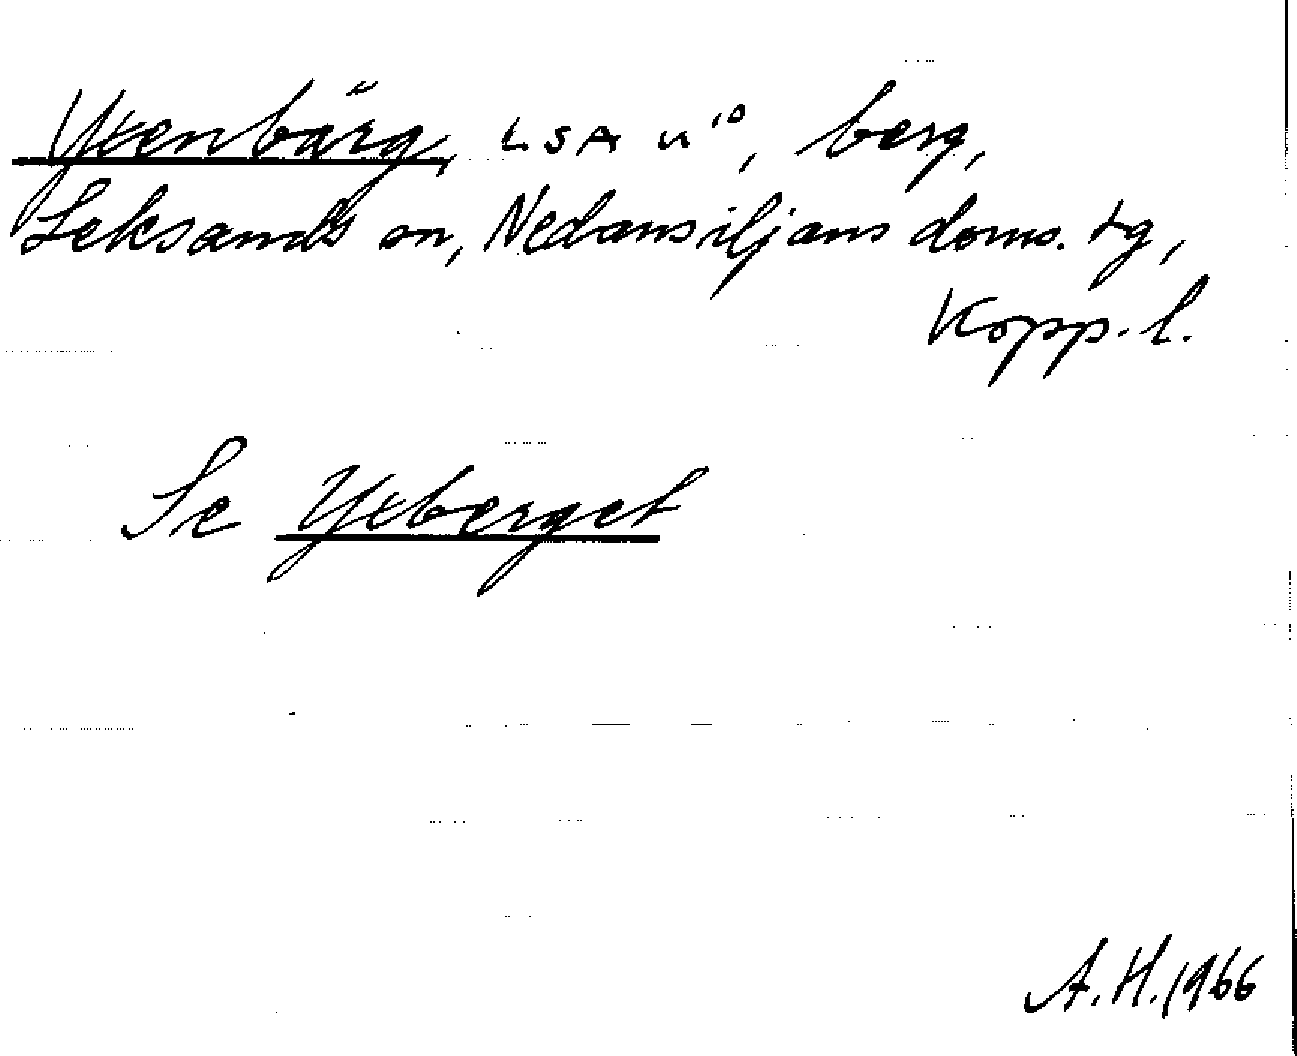 Yxenbärg, LSA u¹⁰, berg,
Leksands sn, Nedansiljans doms. tg,
Kopp. l.
Se Yxberget
A. H. 1966